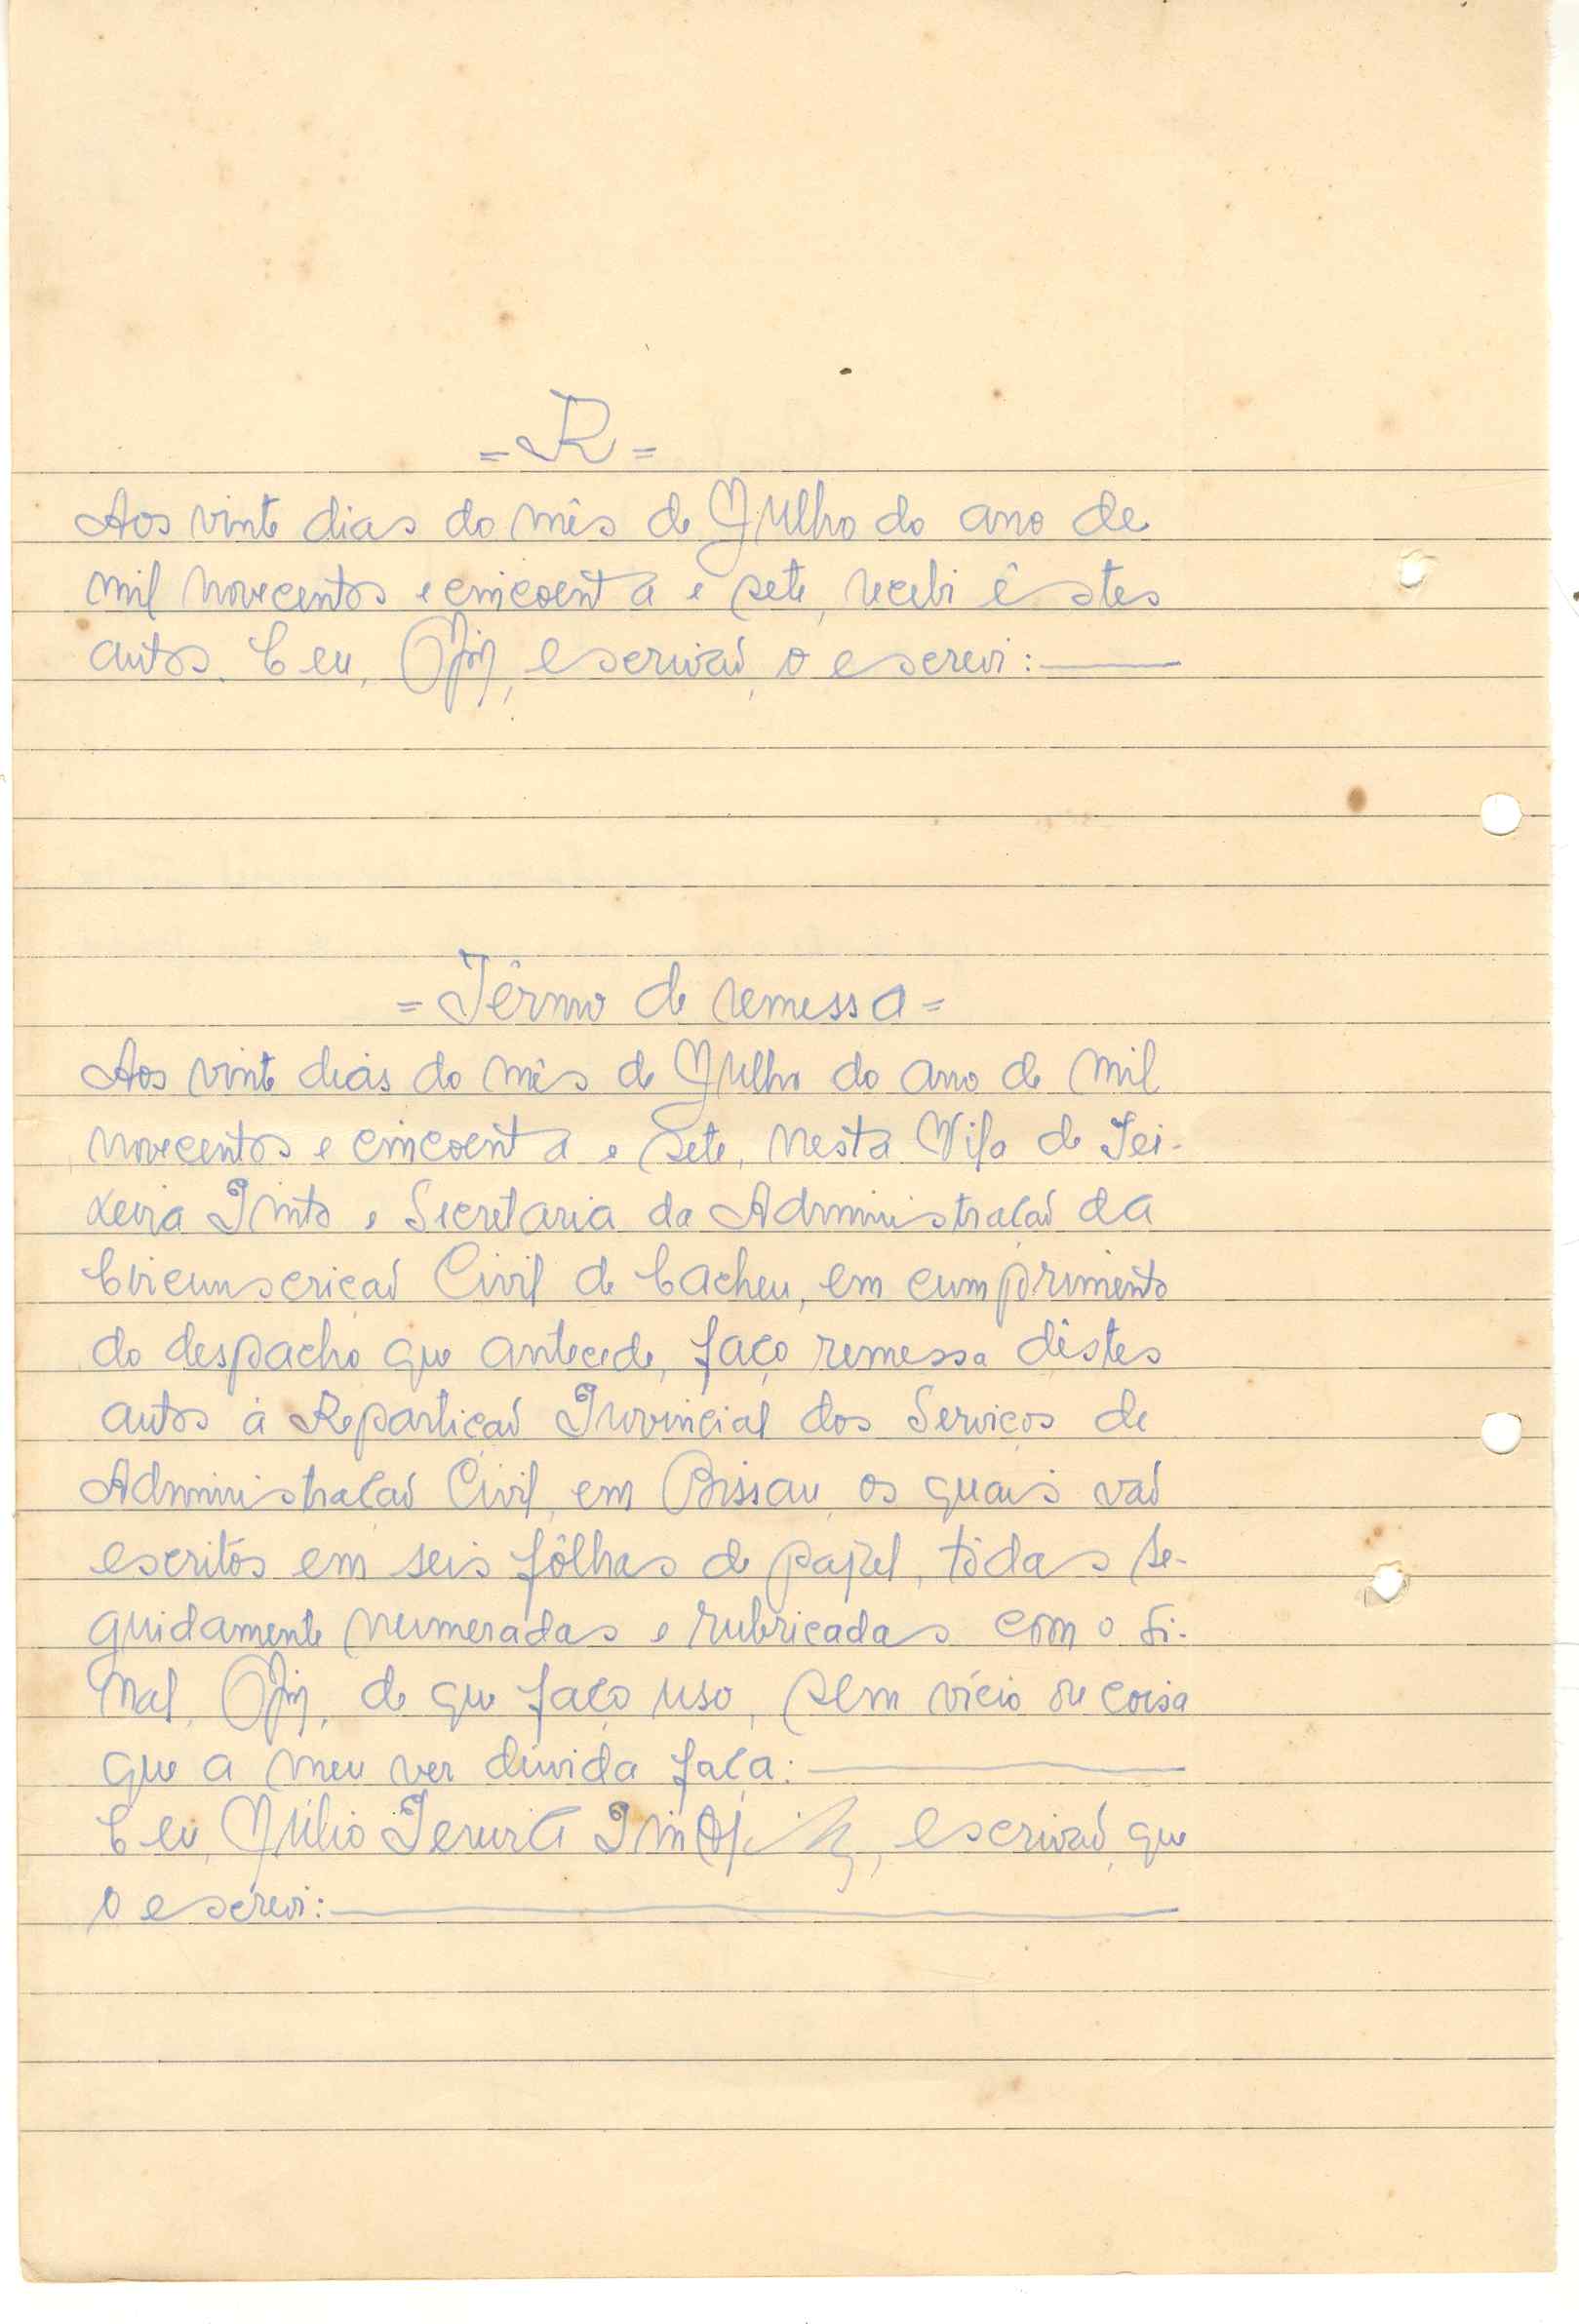 =R=
Aos vinte dias do mês de Julho do ano de
mil novecentos e cincoenta e sete, recebi êstes
autos. E eu, escrivão, o escrevi:
=Têrmo de remessa=
Aos vinte dias do mês de Julho do ano de mil
novecentos e cincoenta e sete, nesta Vila de Tei-
xeira Pinto e Secretaria da Administração da
Circunscrição Civil de Cacheu, em cumprimento
do despacho que antecede, faço remessa dêstes
autos à Repartição Provincial dos Serviços de
Administração Civil, em Bissau, os quais vão
escritos em seis fôlhas de papel, tôdas se-
guidamente numeradas e rubricadas com o si-
nal, de que faço uso, sem vício ou coisa
que a meu ver dúvida faça:
E eu, Júlio escrivão, que
o escrevi: